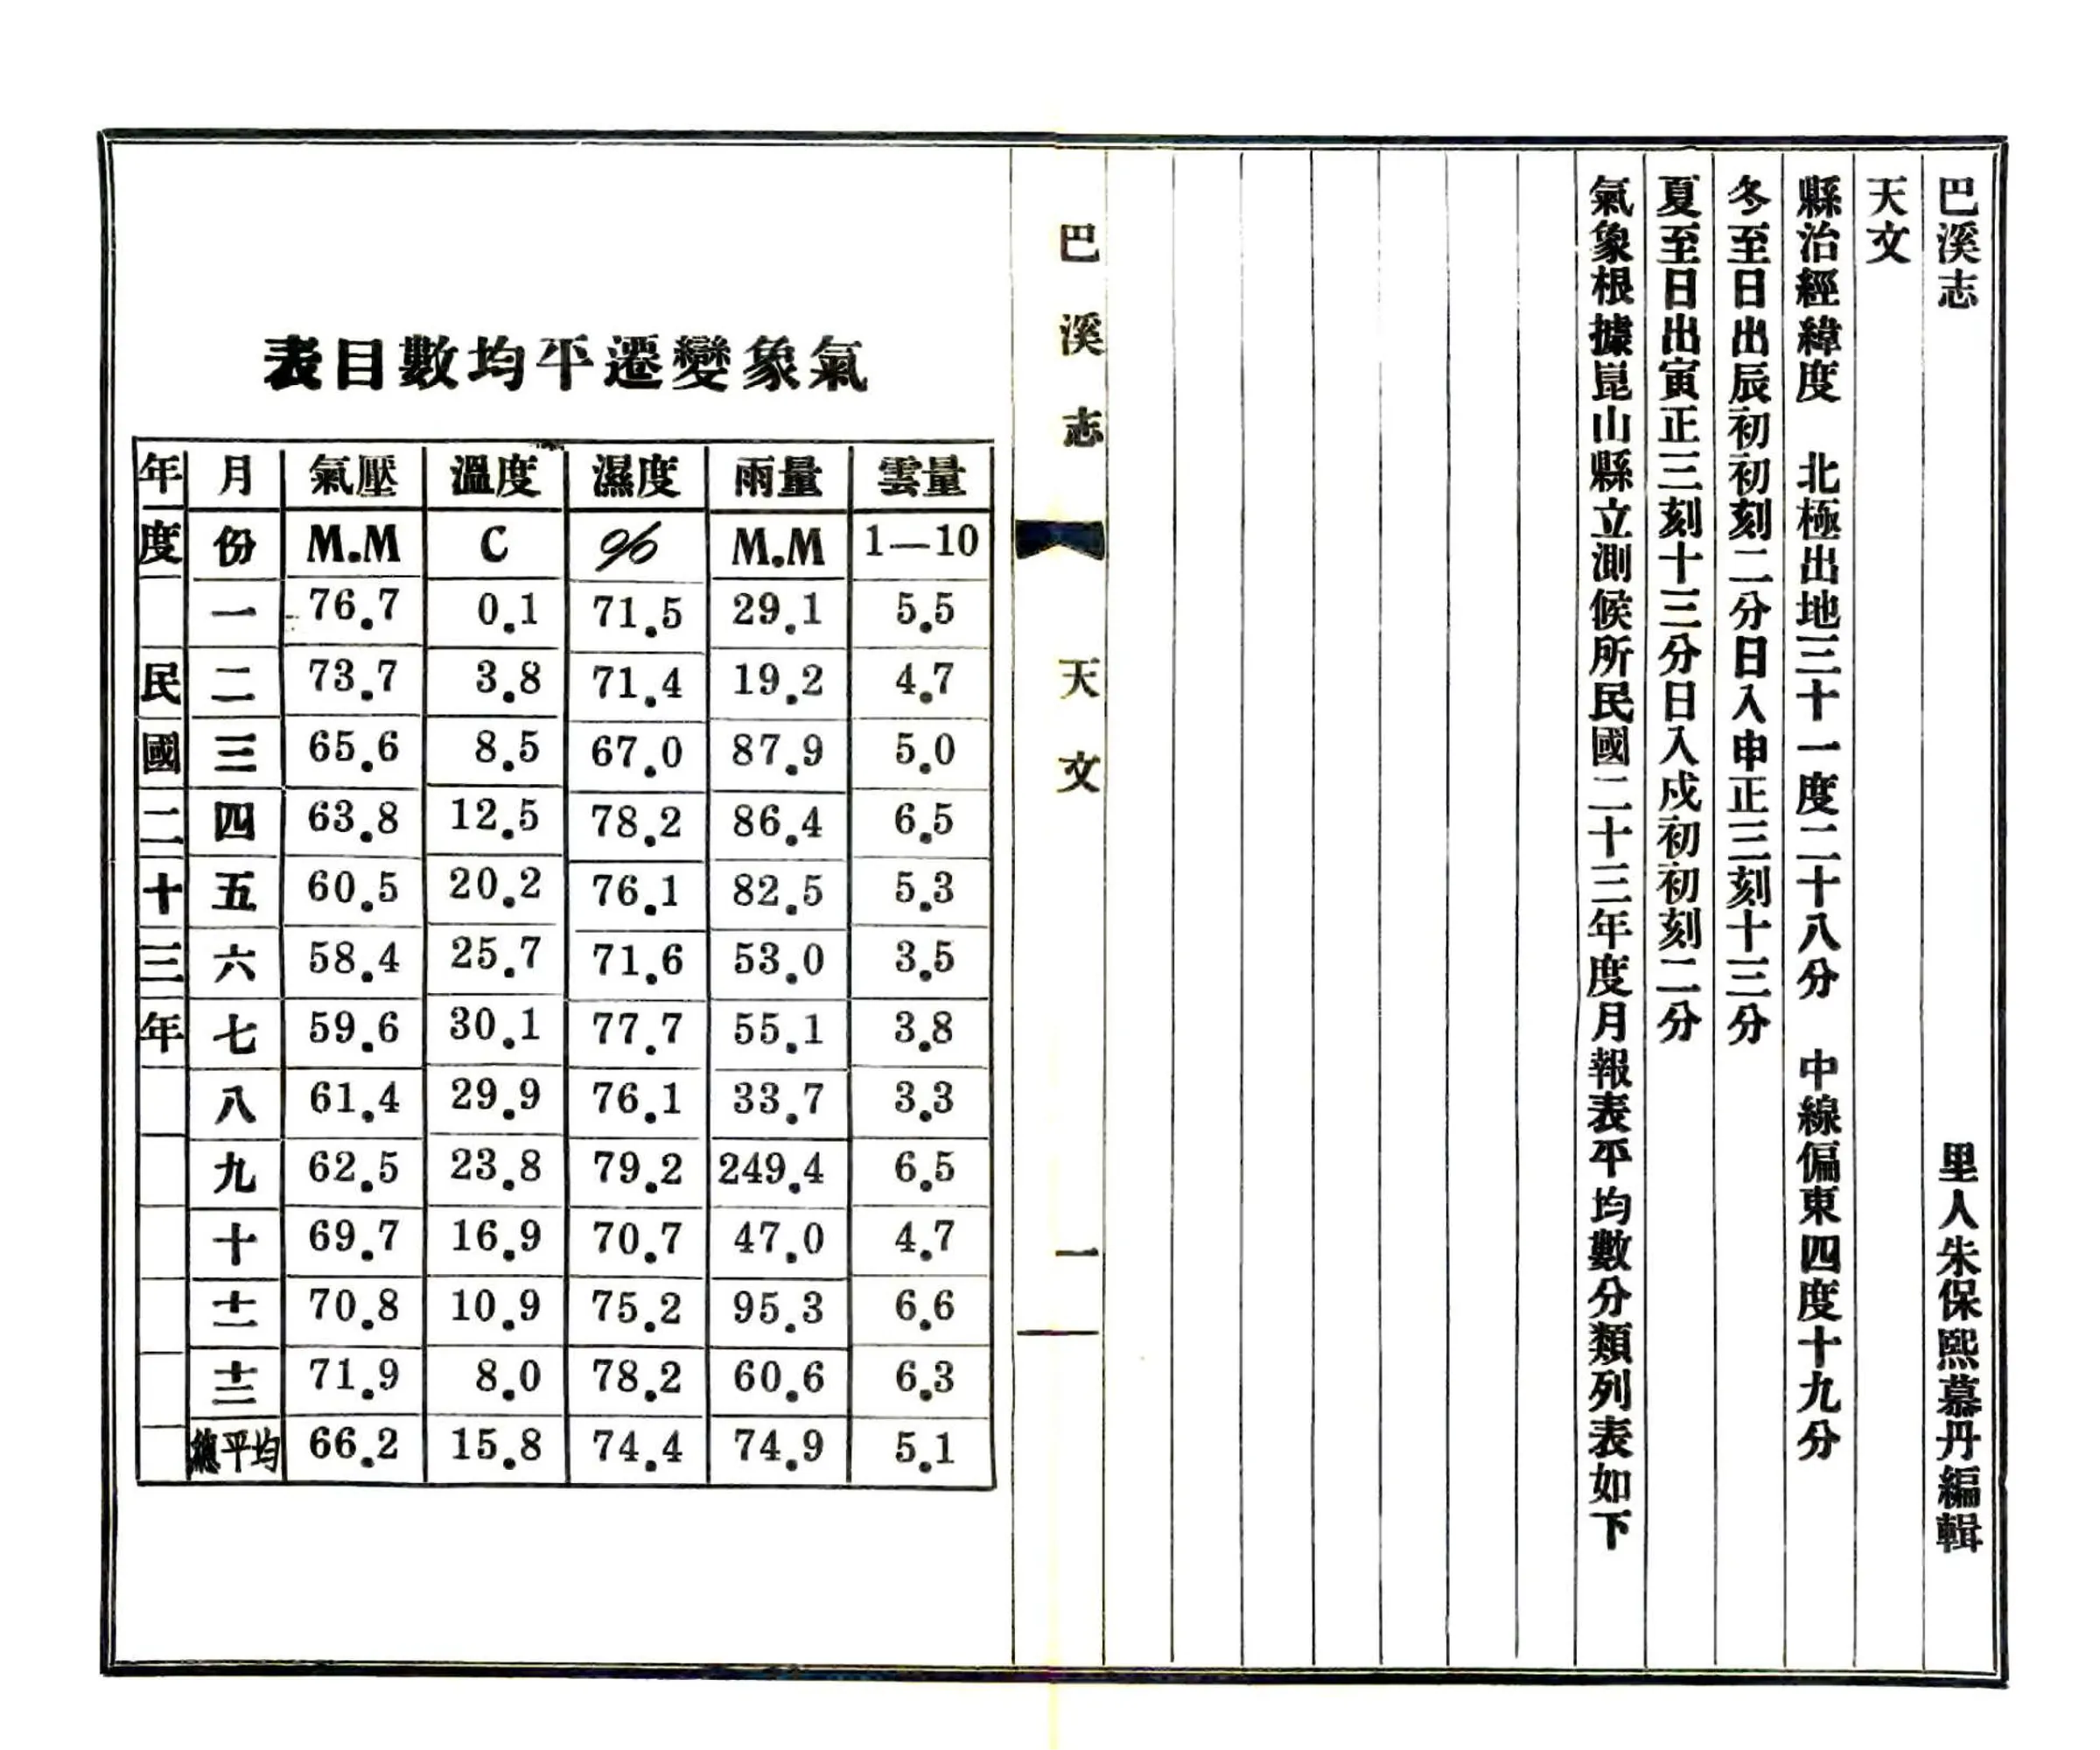 巴溪志　里人朱保熙慕丹編輯
天文
縣治經緯度　北極出地三十一度二十八分　中線偏東四度十九分
冬至日出辰初初刻二分日入申正三刻十三分
夏至日出寅正三刻十三分日入戍初初刻二分
氣象根據崑山縣立測候所民國二十三年度月報表平均數分類列表如下
巴溪志　天文　一
氣象變遷平均數目表
年度 月份 氣壓 溫度 濕度 雨量 雲量
M.M C % M.M 1—10
民國二十三年
一 76.7 0.1 71.5 29.1 5.5
二 73.7 3.8 71.4 19.2 4.7
三 65.6 8.5 67.0 87.9 5.0
四 63.8 12.5 78.2 86.4 6.5
五 60.5 20.2 76.1 82.5 5.3
六 58.4 25.7 71.6 53.0 3.5
七 59.6 30.1 77.7 55.1 3.8
八 61.4 29.9 76.1 33.7 3.3
九 62.5 23.8 79.2 249.4 6.5
十 69.7 16.9 70.7 47.0 4.7
十一 70.8 10.9 75.2 95.3 6.6
十二 71.9 8.0 78.2 60.6 6.3
總平均 66.2 15.8 74.4 74.9 5.1